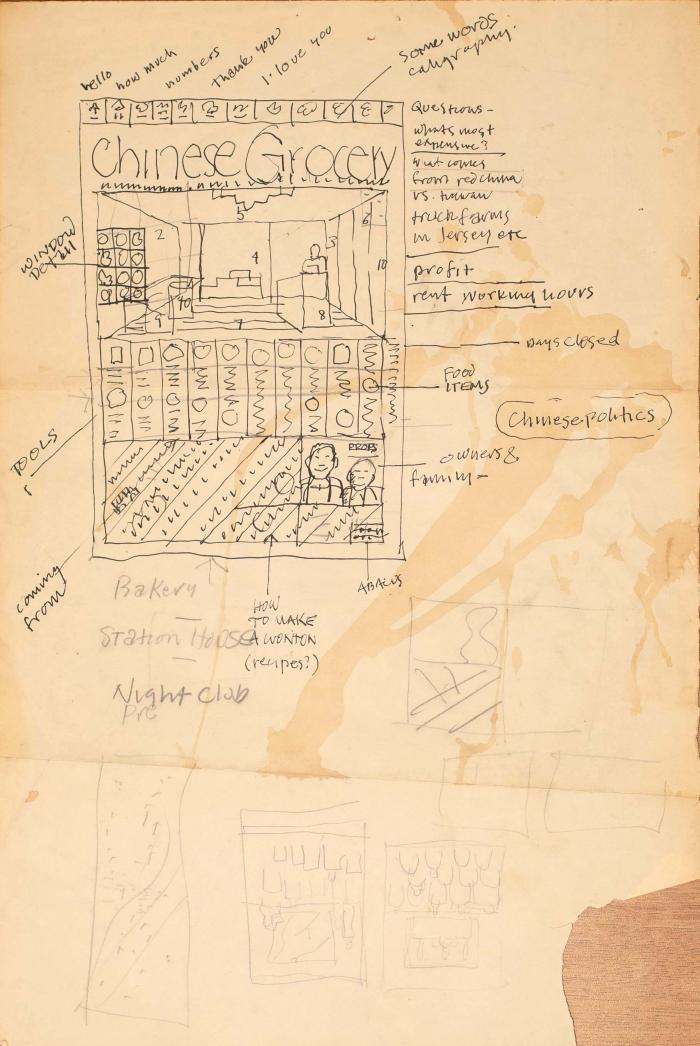 hello
how much
numbers
Thank you
I love you
Some words
caligraphy.
Chinese Grocery
Questions -
whats most
expensive?
what comes
from red china
vs. taiwan
truck farms
in Jersey etc
profit
rent working hours
Days closed
WINDOW
DETAIL
2
5
4
3
6
10
10
9
7
8
FOOD
ITEMS
Chinese politics
TOOLS
PROPS
owners &
family -
coming
from
ABACUS
HOW
TO MAKE
A WONTON
(recipes?)
Bakery
Station House
Night club
Pre